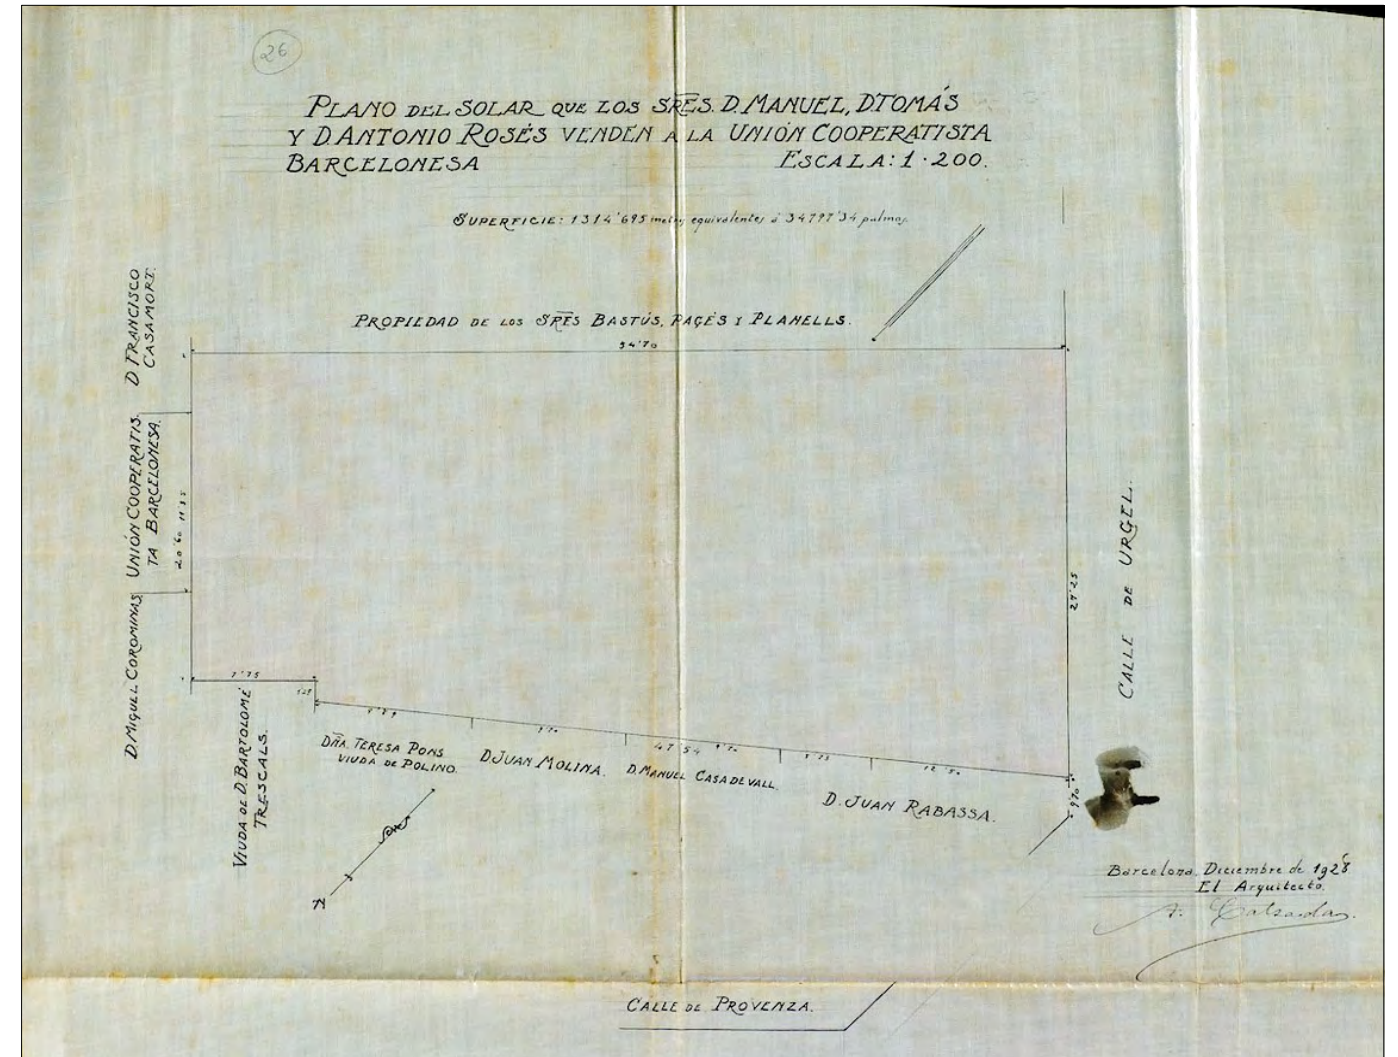 26
PLANO DEL SOLAR QUE LOS SRES. D. MANUEL, D TOMÁS
Y D. ANTONIO ROSÉS VENDEN A LA UNIÓN COOPERATISTA
BARCELONESA ESCALA: 1·200.
SUPERFICIE: 1314'695 metros equivalentes á 34797'34 palmos
PROPIEDAD DE LOS SRES BASTÚS, PAGÉS Y PLANELLS.
54'70
D FRANCISCO
CASAMORT.
UNIÓN COOPERATIS-
TA BARCELONESA.
D. MIQUEL COROMINAS
20'60
27'25
CALLE DE URGEL.
7'75
VIUDA DE D. BARTOLOMÉ
TRESCALS.
DÑA. TERESA PONS
VIUDA DE POLINO.
D. JUAN MOLINA.
47'54
D. MANUEL CASADEVALL.
12'50
D. JUAN RABASSA.
9'70
N
Barcelona, Diciembre de 1928
El Arquitecto.
A. Calzada
CALLE DE PROVENZA.